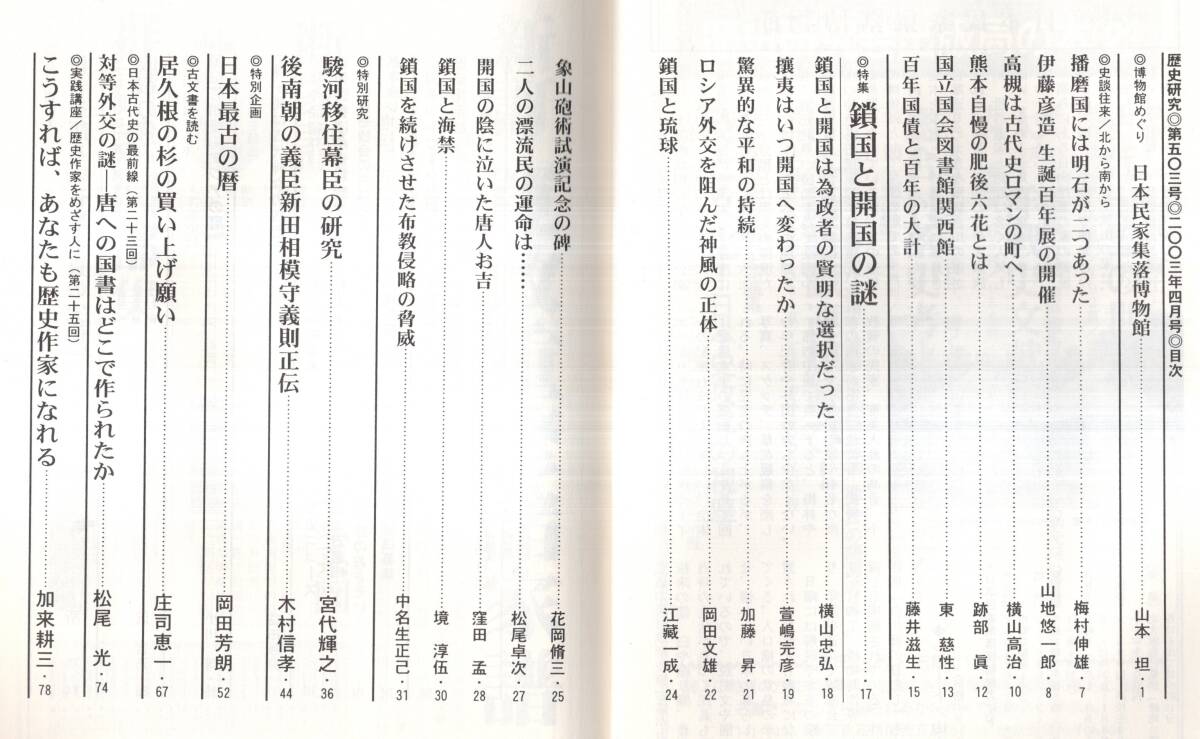 歴史研究◎第五〇三号◎二〇〇三年四月号◎目次
◎博物館めぐり 日本民家集落博物館……山本 坦・1
◎史談往来／北から南から
播磨国には明石が二つあった……梅村伸雄・7
伊藤彦造 生誕百年展の開催……山地悠一郎・8
高槻は古代史ロマンの町へ……横山高治・10
熊本自慢の肥後六花とは……跡部 眞・12
国立国会図書館関西館……東 慈性・13
百年国債と百年の大計……藤井滋生・15
◎特集 鎖国と開国の謎……17
鎖国と開国は為政者の賢明な選択だった……横山忠弘・18
攘夷はいつ開国へ変わったか……萱嶋完彦・19
驚異的な平和の持続……加藤 昇・21
ロシア外交を阻んだ神風の正体……岡田文雄・22
鎖国と琉球……江藏一成・24
象山砲術試演記念の碑……花岡脩三・25
二人の漂流民の運命は……松尾卓次・27
開国の陰に泣いた唐人お吉……窪田 孟・28
鎖国と海禁……境 淳伍・30
鎖国を続けさせた布教侵略の脅威……中名生正己・31
◎特別研究
駿河移住幕臣の研究……宮代輝之・36
後南朝の義臣新田相模守義則正伝……木村信孝・44
◎特別企画
日本最古の暦……岡田芳朗・52
◎古文書を読む
居久根の杉の買い上げ願い……庄司恵一・67
◎日本古代史の最前線（第二十三回）
対等外交の謎―唐への国書はどこで作られたか……松尾 光・74
◎実践講座／歴史作家をめざす人に（第二十五回）
こうすれば、あなたも歴史作家になれる……加来耕三・78